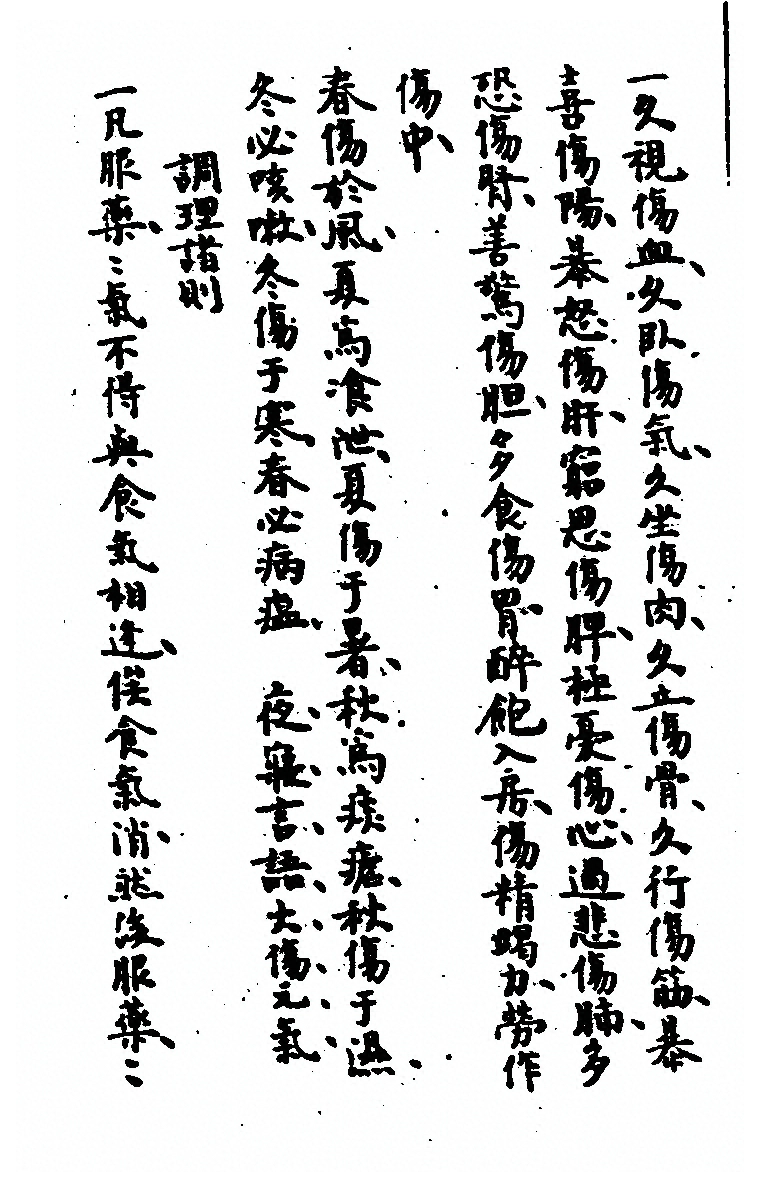 一久視傷血、久臥傷氣、久坐傷肉、久立傷骨、久行傷筋、暴
喜傷陽、暴怒傷肝、窮思傷脾、極憂傷心、過悲傷肺、多
恐傷腎、善驚傷胆、多食傷胃、醉飽入房、傷精竭力、勞作
傷中、
春傷於風、夏為飡泄、夏傷于暑、秋為痎瘧、秋傷于濕、
冬必咳嗽、冬傷于寒、春必病瘟、夜寢言語大傷元氣
調理諸則
一凡服藥、〻氣不得與食氣相逢、俟食氣消、然後服藥、〻